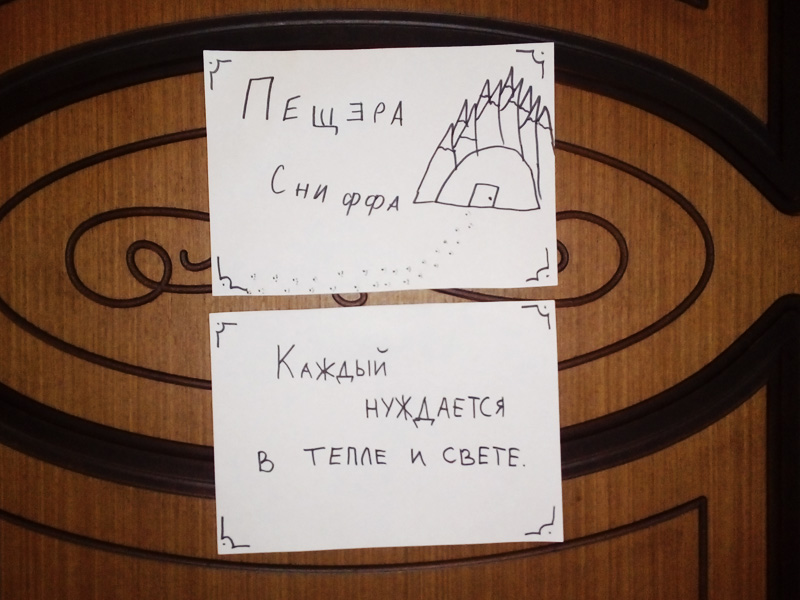 Пещэра
Сниффа
Каждый
нуждается
в тепле и свете.